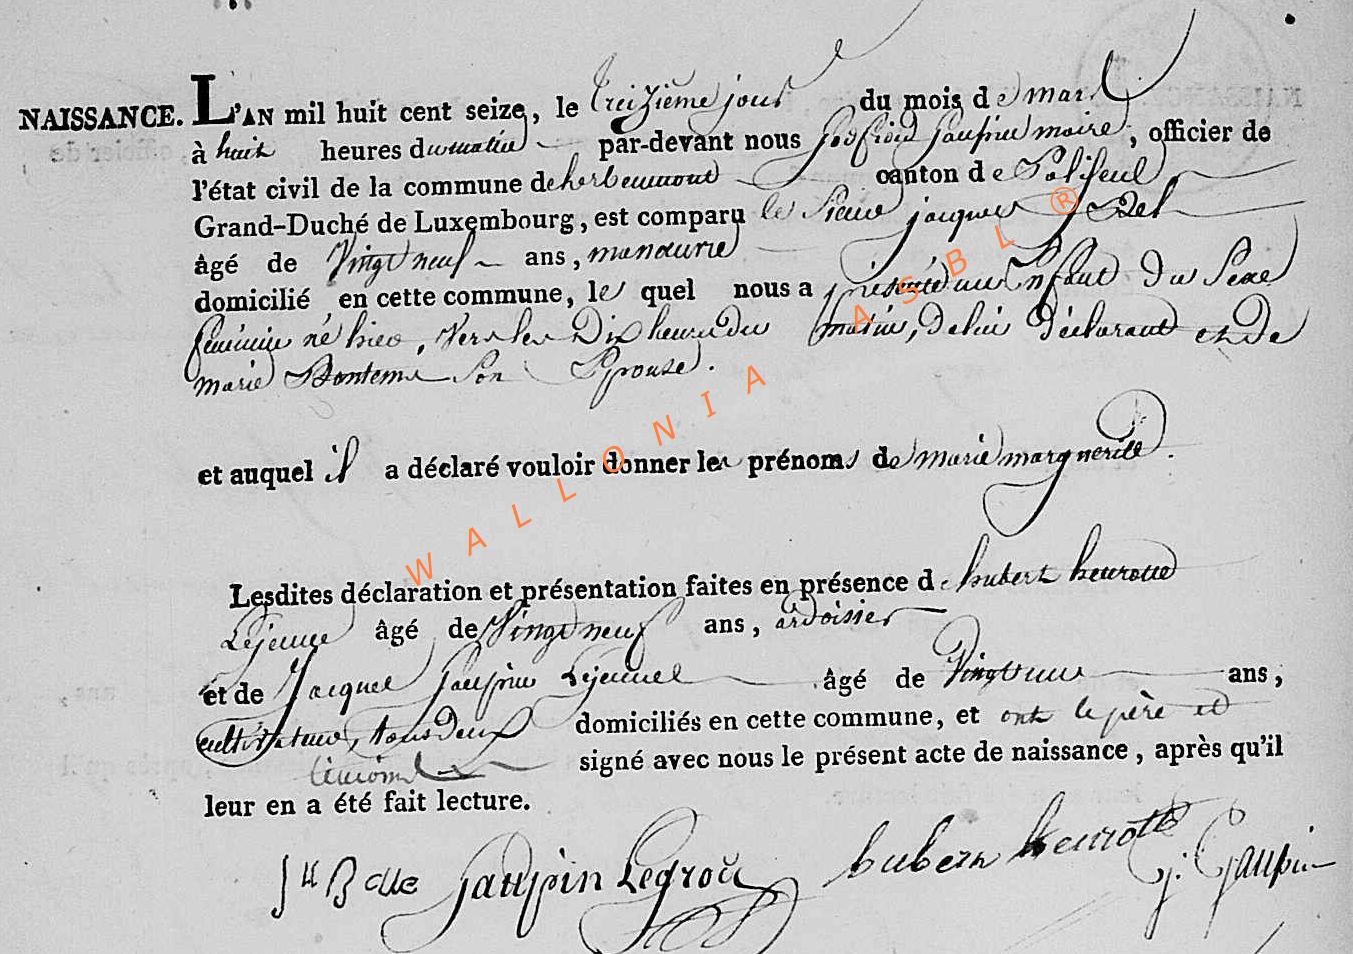 NAISSANCE. L'AN mil huit cent seize, le treizième jour du mois de mars
à huit heures du matin par-devant nous godfroid gaupin maire, officier de
l'état civil de la commune de herbeumont canton de Paliseul
Grand-Duché de Luxembourg, est comparu le Sieur jacques
âgé de Vingt neuf ans, manœuvre
domicilié en cette commune, le quel nous a présenté un Enfant Du Sexe
féminin né hier, vers les Dix heures du matin, de lui Déclarant et De
marie Bontems Son Epouse.
et auquel il a déclaré vouloir donner les prénoms de marie marguerite.
Lesdites déclaration et présentation faites en présence de hubert heurotte
Lejeune âgé de Vingt neuf ans, ardoisier
et de Jacques gaupin Lejeune âgé de Vingt ans,
cultivateur, tous deux domiciliés en cette commune, et ont le père et
témoins signé avec nous le présent acte de naissance, après qu'il
leur en a été fait lecture.
gaupin Legros hubert heurotte G. Gaupin
WALLONIA ASBL ®